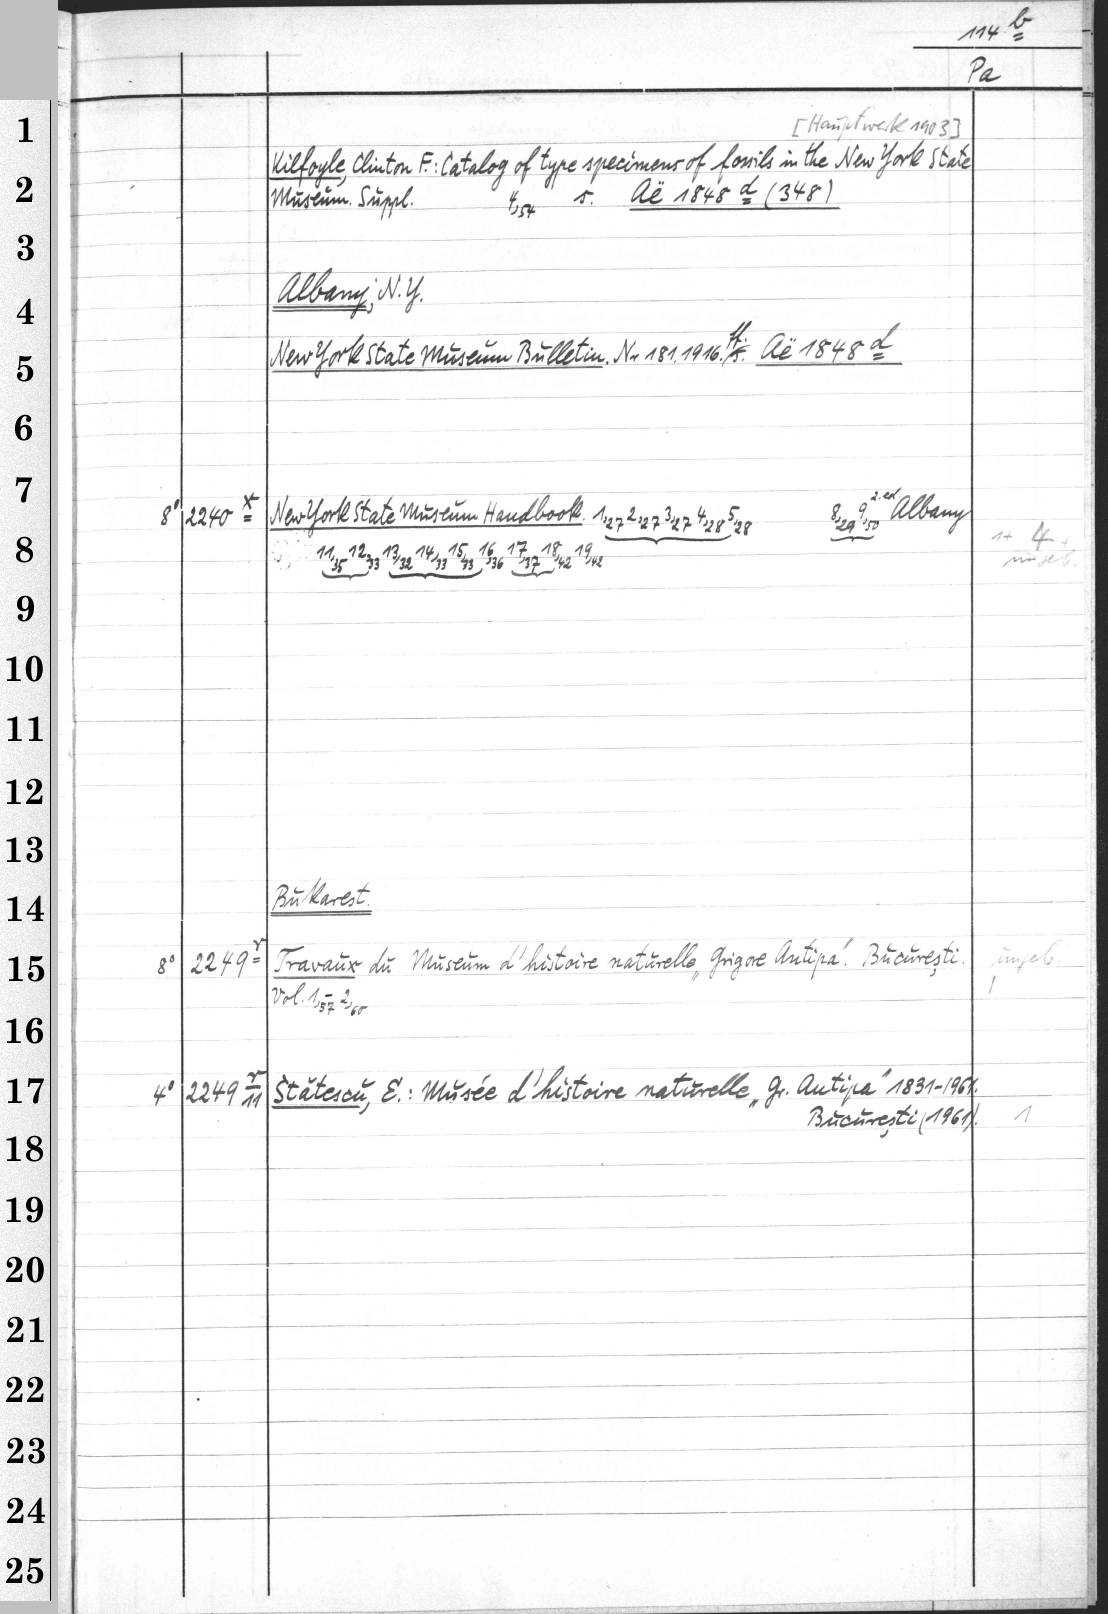 114 b
Pa
[Hauptwerk 1903]
Kilfoyle, Clinton F.: Catalog of type specimens of fossils in the New York State
Museum. Suppl. 4,54 s. Aë 1848 d (348)
Albany, N.Y.
New York State Museum Bulletin. Nr 181.1916 ff. s. Aë 1848 d
8° 2240 x New York State Museum Handbook. 1,27 2,27 3,27 4,28 5,28 8,29 9,50 2.ed Albany
11,35 12,33 13,32 14,33 15,33 16,36 17,37 18,42 19,42
1+ 4+
ungeb.
Bukarest.
8° 2249 r Travaux du Museum d'histoire naturelle „Grigore Antipa". București. ungeb.
Vol. 1,57- 2,60 1
4° 2249 r/11 Stătescu, E.: Musée d'histoire naturelle „Gr. Antipa" 1831-1961.
București (1961). 1
1
2
3
4
5
6
7
8
9
10
11
12
13
14
15
16
17
18
19
20
21
22
23
24
25